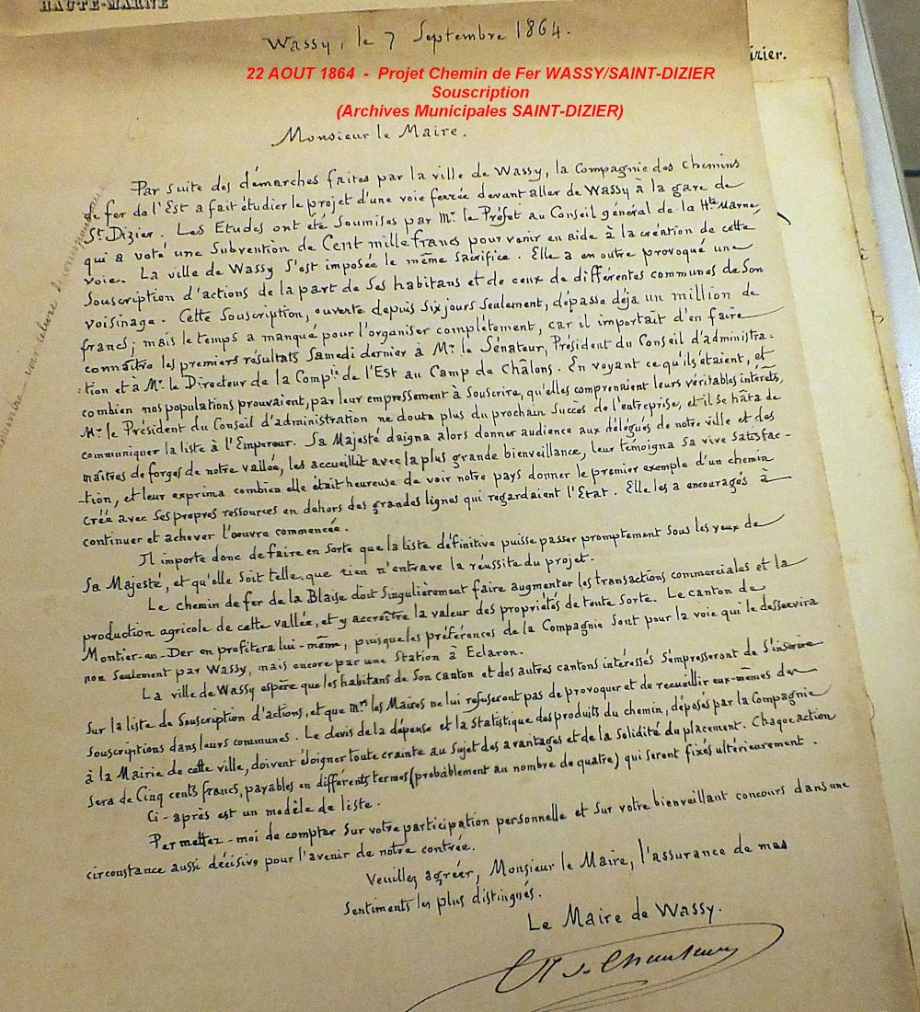 HAUTE-MARNE
Wassy, le 7 Septembre 1864.
izier.
22 AOUT 1864 - Projet Chemin de Fer WASSY/SAINT-DIZIER
Souscription
(Archives Municipales SAINT-DIZIER)
Monsieur le Maire.
Par suite des démarches faites par la ville de Wassy, la Compagnie des Chemins
de fer de l'Est a fait étudier le projet d'une voie ferrée devant aller de Wassy à la gare de
St. Dizier. Les Etudes ont été soumises par Mr. le Préfet au Conseil général de la Hte Marne
qui a voté une Subvention de Cent mille francs pour venir en aide à la création de cette
voie. La ville de Wassy s'est imposée le même sacrifice. Elle a en outre provoqué une
Souscription d'actions de la part de ses habitans et de ceux de différentes communes de son
voisinage. Cette Souscription, ouverte depuis six jours seulement, dépasse déja un million de
francs; mais le temps a manqué pour l'organiser complètement, car il importait d'en faire
connaître les premiers résultats Samedi dernier à Mr. le Sénateur, Président du Conseil d'administra-
-tion et à Mr. le Directeur de la Compie de l'Est au Camp de Châlons. En voyant ce qu'ils étaient, et
combien nos populations prouvaient, par leur empressement à Souscrire, qu'elles comprenaient leurs véritables intérêts,
Mr. le Président du Conseil d'administration ne douta plus du prochain Succès de l'entreprise, et il se hâta de
communiquer la liste à l'Empereur. Sa Majesté daigna alors donner audience aux délégués de notre ville et des
maîtres de forges de notre vallée, les accueillit avec la plus grande bienveillance, leur témoigna sa vive satisfac-
-tion, et leur exprima combien elle était heureuse de voir notre pays donner le premier exemple d'un chemin
créé avec ses propres ressources en dehors des grandes lignes qui regardaient l'Etat. Elle les a encouragés à
continuer et achever l'œuvre commencée.
Il importe donc de faire en sorte que la liste définitive puisse passer promptement sous les yeux de
Sa Majesté, et qu'elle soit telle que rien n'entrave la réussite du projet.
Le chemin de fer de la Blaise doit singulièrement faire augmenter les transactions commerciales et la
production agricole de cette vallée, et y accroître la valeur des propriétés de toute sorte. Le canton de
Montier-en-Der en profitera lui-même, puisque les préférences de la Compagnie sont pour la voie qui le desservira
non seulement par Wassy, mais encore par une Station à Eclaron.
La ville de Wassy espère que les habitans de son canton et des autres cantons intéressés s'empresseront de s'inscrire
sur la liste de Souscription d'actions, et que mrs les Maires ne lui refuseront pas de provoquer et de recueillir eux-mêmes des
souscriptions dans leurs communes. Le devis de la dépense et la statistique des produits du chemin, déposés par la Compagnie
à la Mairie de cette ville, doivent éloigner toute crainte au sujet des avantages et de la solidité du placement. Chaque action
sera de Cinq cents francs, payables en différents termes (probablement au nombre de quatre) qui seront fixés ultérieurement.
Ci-après est un modèle de liste.
Permettez-moi de compter sur votre participation personnelle et sur votre bienveillant concours dans une
circonstance aussi décisive pour l'avenir de notre contrée.
Veuillez agréer, Monsieur le Maire, l'assurance de mes
Sentiments les plus distingués.
Le Maire de Wassy.